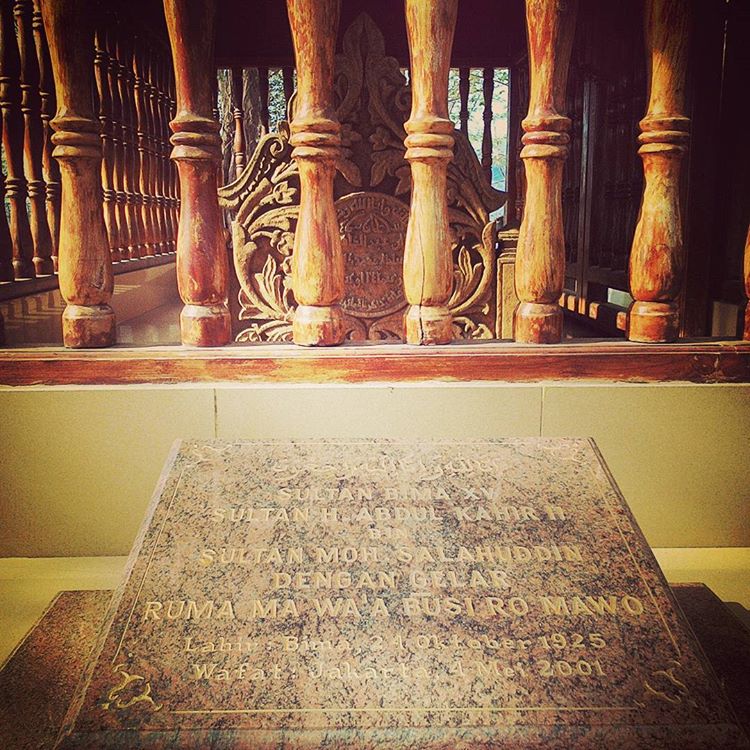 بسم الله الرحمن الرحيم
SULTAN BIMA XV
SULTAN H. ABDUL KAHIR II
BIN
SULTAN MOH. SALAHUDDIN
DENGAN GELAR
RUMA MA WA'A BUSI RO MAWO
Lahir : Bima, 24 Oktober 1925
Wafat : Jakarta, 4 Mei 2001